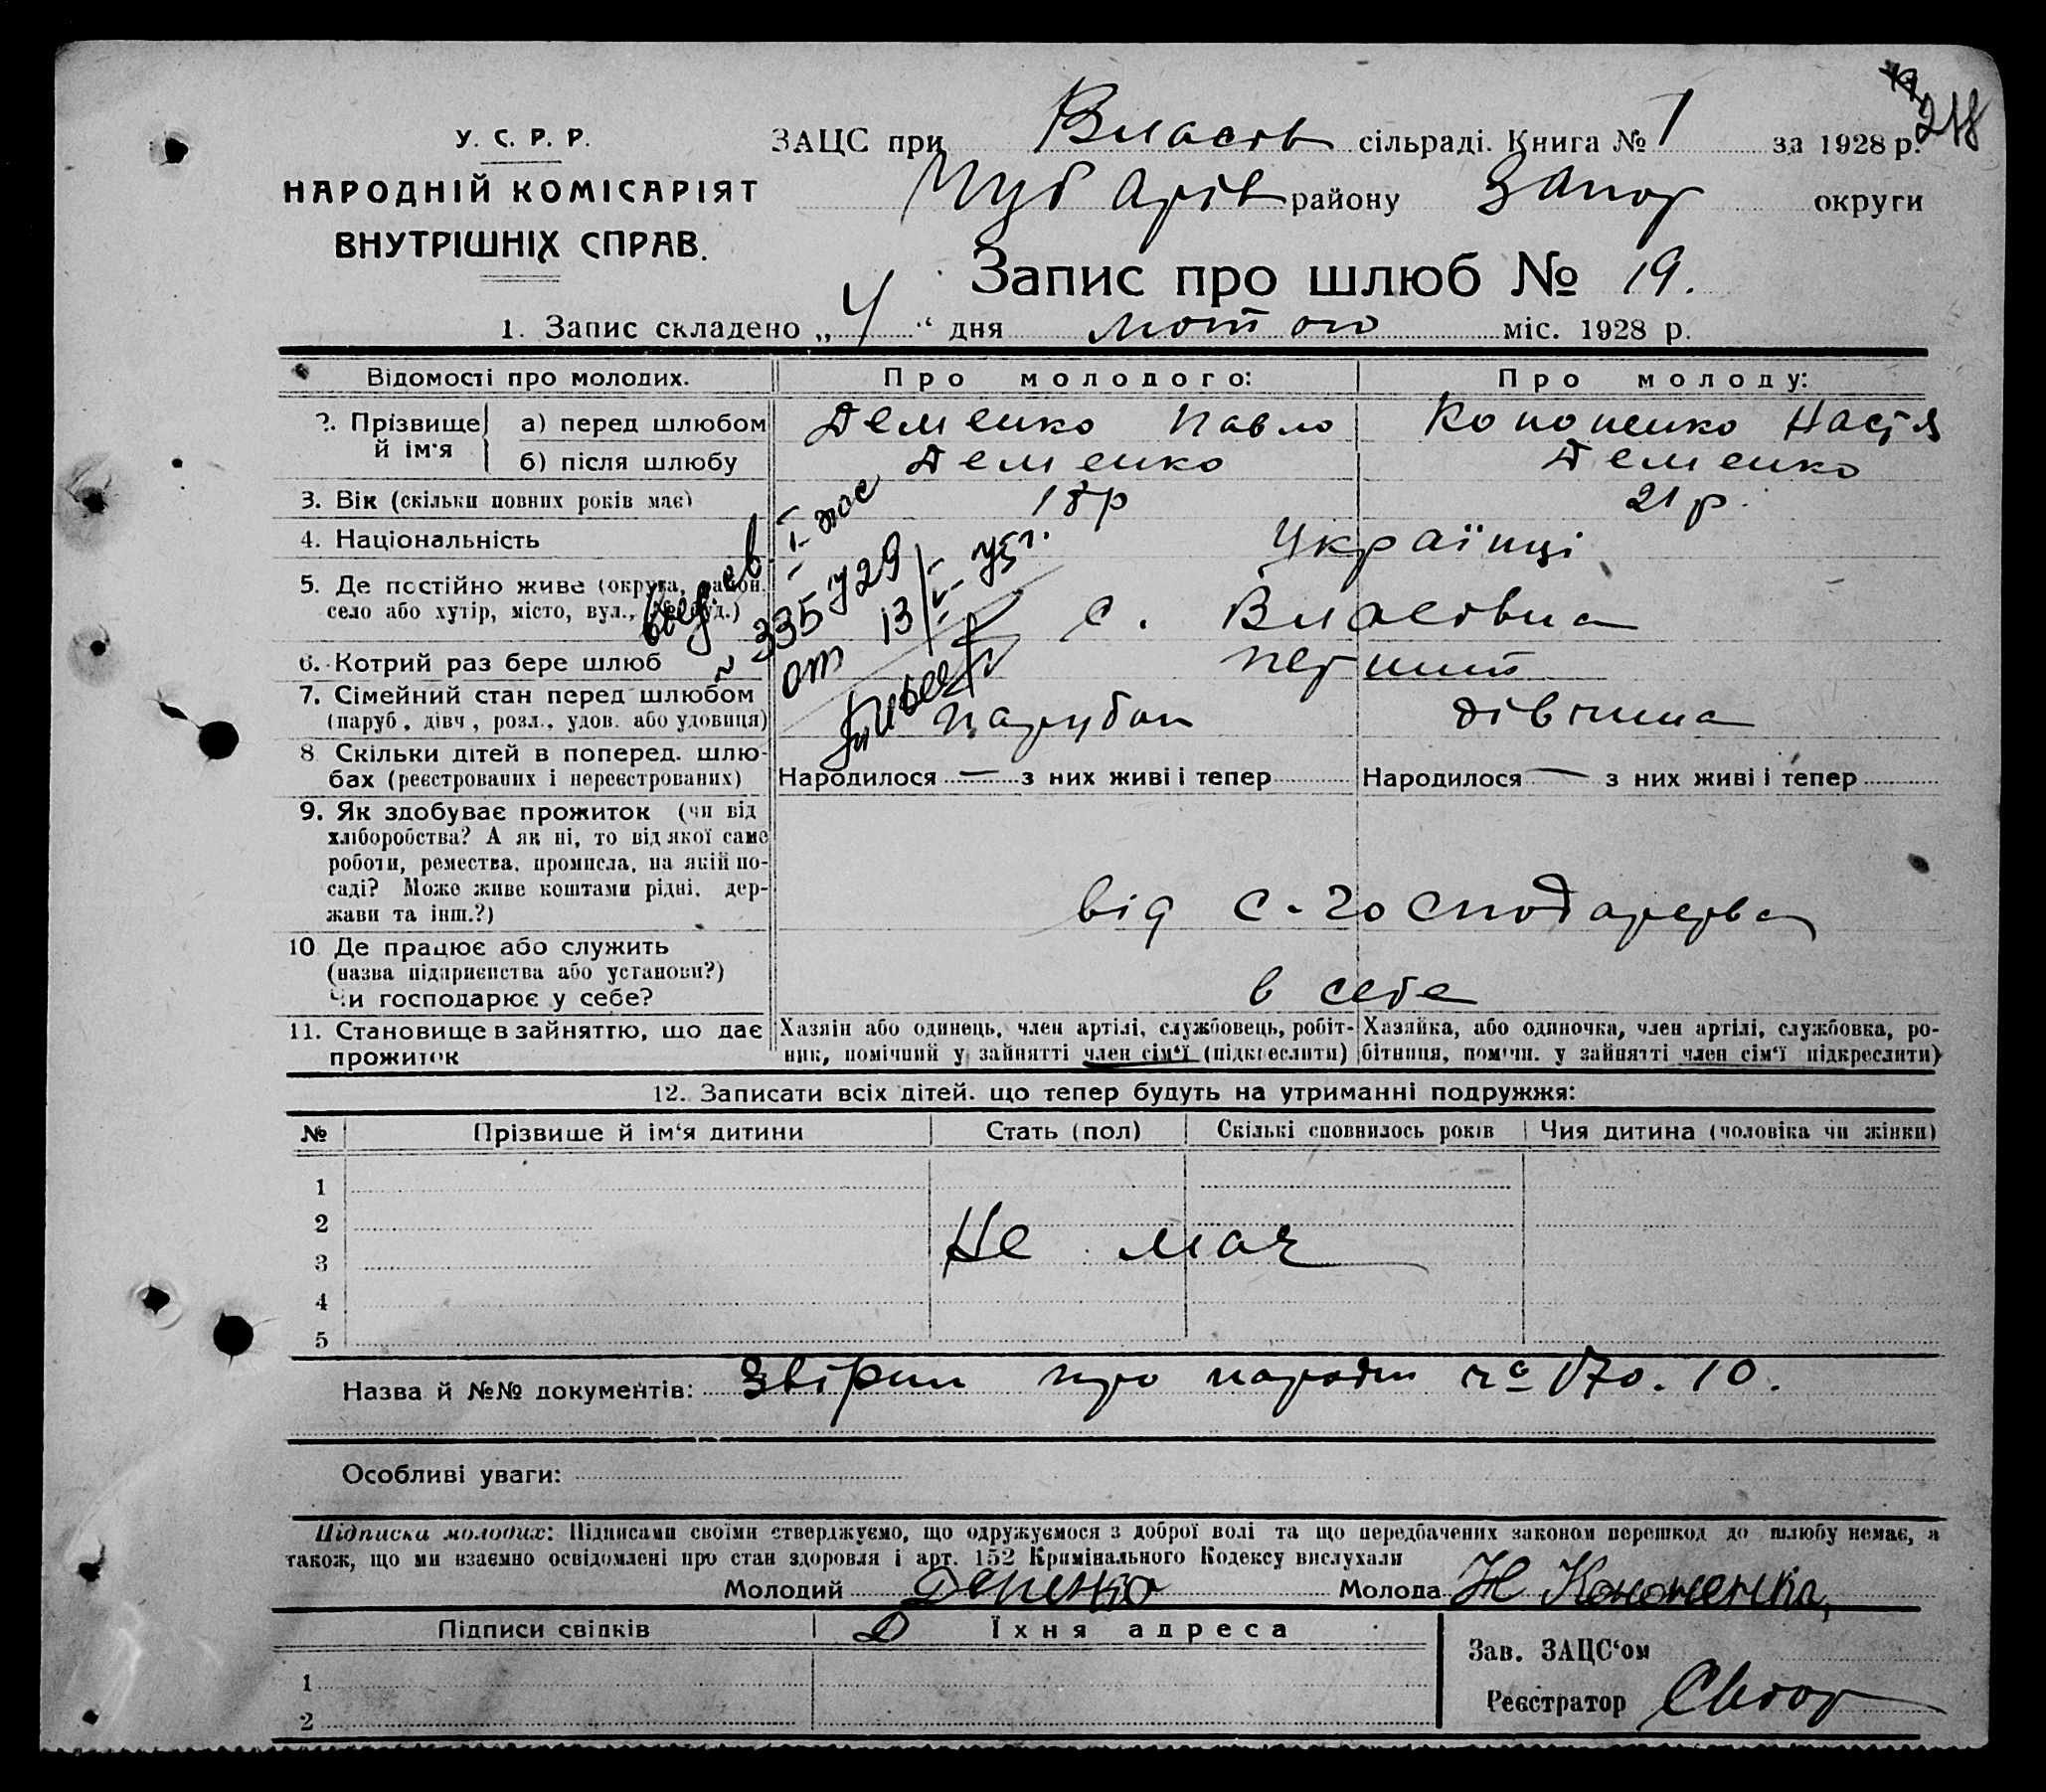 218
У. С. Р. Р.
НАРОДНІЙ КОМІСАРІЯТ
ВНУТРІШНІХ СПРАВ.
ЗАЦС при Власів сільраді. Книга № 1 за 1928 р.
Чубарів району Запор округи
Запис про шлюб № 19.
1. Запис складено „ 4 “ дня лютого міс. 1928 р.
Відомості про молодих. Про молодого: Про молоду:
2. Прізвище й ім'я
а) перед шлюбом Деменко Павло Кононенко Настя
б) після шлюбу Деменко Деменко
3. Вік (скільки повних років має) 18р 21р.
4. Національність Українці
5. Де постійно живе (округа, район,
село або хутір, місто, вул., буд.) с. Власовка
335 729
от 13
6. Котрий раз бере шлюб перший
7. Сімейний стан перед шлюбом
(паруб., дівч., розл., удов. або удовиця) Парубок дівчина
8 Скільки дітей в поперед. шлю-
бах (реєстрованих і нереєстрованих) Народилося — з них живі і тепер Народилося — з них живі і тепер
9. Як здобуває прожиток (чи від
хліборобства? А як ні, то від якої саме
роботи, ремества, промисла, на якій по-
саді? Може живе коштами рідні, дер-
жави та інш.?) від с-господарства
10 Де працює або служить
(назва підприємства або установи?)
Чи господарює у себе? в себе
11. Становище в зайняттю, що дає
прожиток
Хазяїн або одинець, член артілі, службовець, робіт-
ник, помічний у зайнятті член сім'ї (підкреслити)
Хазяйка, або одиночка, член артілі, службовка, ро-
бітниця, помічн. у зайнятті член сім'ї підкреслити)
12. Записати всіх дітей. що тепер будуть на утриманні подружжя:
№ Прізвище й ім'я дитини Стать (пол) Скількі сповнилось років Чия дитина (чоловіка чи жінки)
1
2
Не має
3
4
5
Назва й №№ документів: Звірки про народж № 170. 10.
Особливі уваги:
Підписка молодих: Підписами своїми стверджуємо, що одружуємося з доброї волі та що передбачених законом перешкод до шлюбу немає, а
також, що ми взаємно освідомлені про стан здоровля і арт. 152 Кримінального Кодексу вислухали
Молодий Деменко Молода Н Кононенка
Підписи свідків Їхня адреса
Зав. ЗАЦС'ом
1
Реєстратор
2